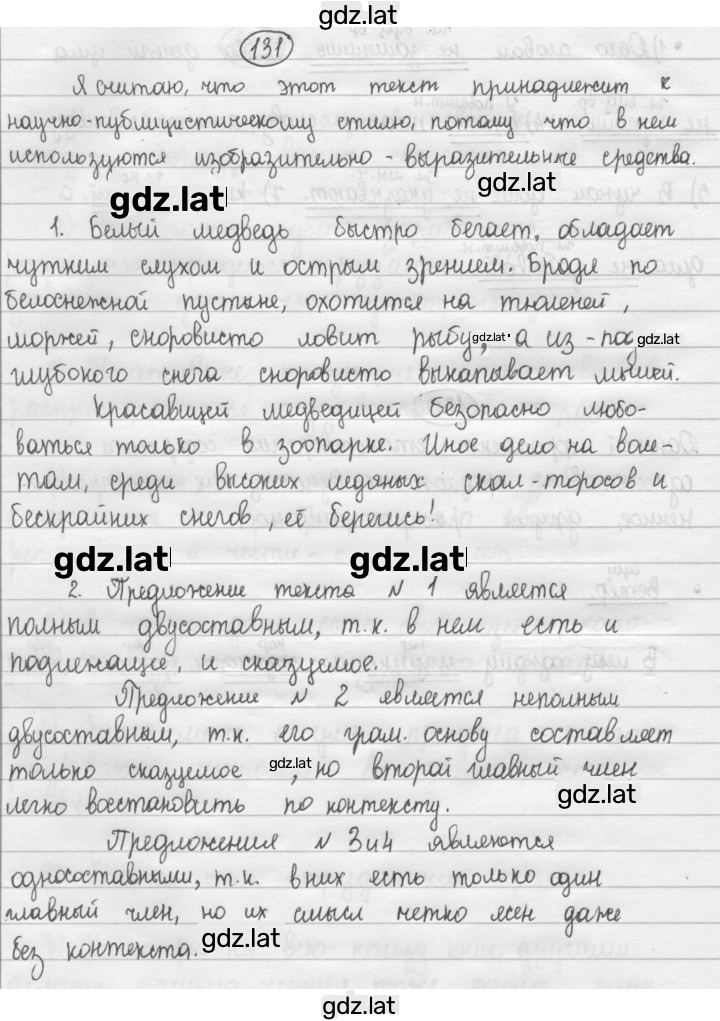 gdz.lat
131
Я считаю, что этот текст принадлежит к
научно-публицистическому стилю, потому что в нем
используются изобразительно-выразительные средства.
gdz.lat
gdz.lat
1. Белый медведь быстро бегает, обладает
чутким слухом и острым зрением. Бродя по
белоснежной пустыне, охотится на тюленей,
моржей, сноровисто ловит рыбу, а из-под
gdz.lat
gdz.lat
глубокого снега сноровисто выкапывает мышей.
Красавицей медведицей безопасно любо-
ваться только в зоопарке. Иное дело на воле-
там, среди высоких ледяных скал-торосов и
бескрайних снегов, её берегись!
gdz.lat
gdz.lat
2. Предложение текста № 1 является
полным двусоставным, т.к. в нем есть и
подлежащее, и сказуемое.
Предложение № 2 является неполным
двусоставным, т.к. его грам. основу составляет
только сказуемое, но второй главный член
gdz.lat
легко восстановить по контексту.
gdz.lat
Предложения № 3и4 являются
односоставными, т.к. в них есть только один
главный член, но их смысл четко ясен даже
без контекста.
gdz.lat
gdz.lat